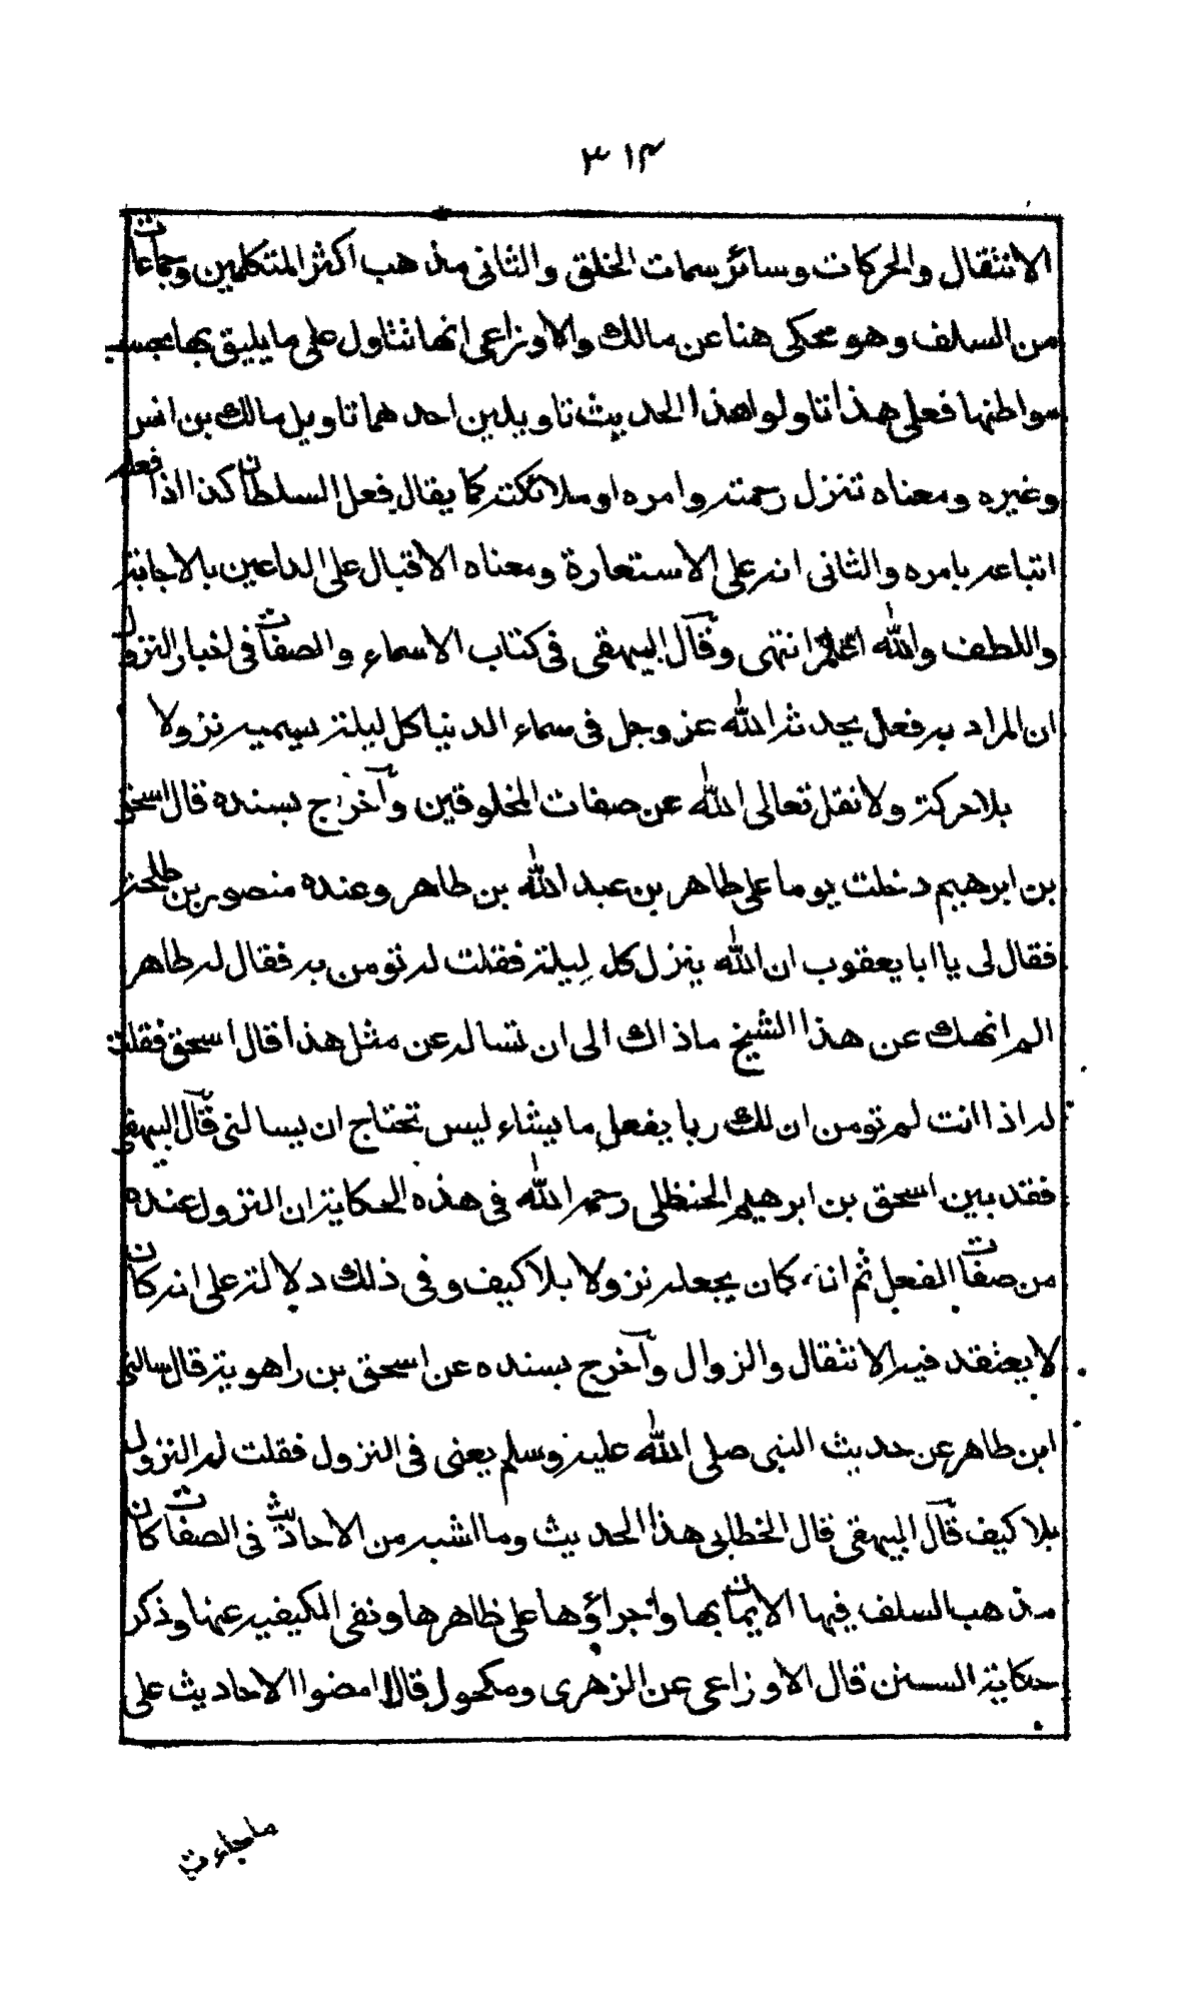 ٣١٣
الانتقال والحركات وسائر سمات الخلق والثانى مذهب اكثر المتكلمين وجماعات
من السلف وهو محكى هنا عن مالك والاوزاعى انها تتاول على ما يليق بها بحسب
مواطنها فعلى هذا تاولوا هذا الحديث تاويلين احدهما تاويل مالك بن انس
وغيره ومعناه تنزل رحمته وامره او ملائكته كما يقال فعل السلطان كذا اذا فعله
اتباعه بامره والثانى انه على الاستعارة ومعناه الاقبال على الداعين بالاجابة
واللطف والله اعلم انتهى وقال البيهقى فى كتاب الاسماء والصفات فى اخبار النزول
ان المراد به فعل يحدثه الله عز وجل فى سماء الدنيا كل ليلة يسميه نزولا
بلا حركة ولا نقل تعالى الله عن صفات المخلوقين وآخرج بسنده قال اسحق
بن ابرهيم دخلت يوما على طاهر بن عبد الله بن طاهر وعنده منصور بن طلحة
فقال لى يا ابا يعقوب ان الله ينزل كل ليلة فقلت له تومن به فقال له طاهر
الم انهك عن هذا الشيخ ماذاك الى ان تساله عن مثل هذا قال اسحق فقلت
له اذا انت لم تومن ان لك ربا يفعل ما يشاء ليس تحتاج ان يسالنى قال البيهقى
فقد بين اسحق بن ابرهيم الحنظلى رحمه الله فى هذه الحكاية ان النزول عنده
من صفات الفعل ثم انه كان يجعله نزولا بلا كيف وفى ذلك دلالة على انه كان
لا يعتقد فيه الانتقال والزوال وآخرج بسنده عن اسحق بن راهوية قال سالنى
ابن طاهر عن حديث النبى صلى الله عليه وسلم يعنى فى النزول فقلت له النزول
بلا كيف قال البيهقى قال الخطابى هذا الحديث وما اشبه من الاحاديث فى الصفات كان
مذهب السلف فيها الايمان بها واجراؤها على ظاهرها ونفى الكيفيه عنها وذكر
حكاية السنن قال الاوزاعى عن الزهرى ومكحول قالا امضوا الاحاديث على
ما جاءت